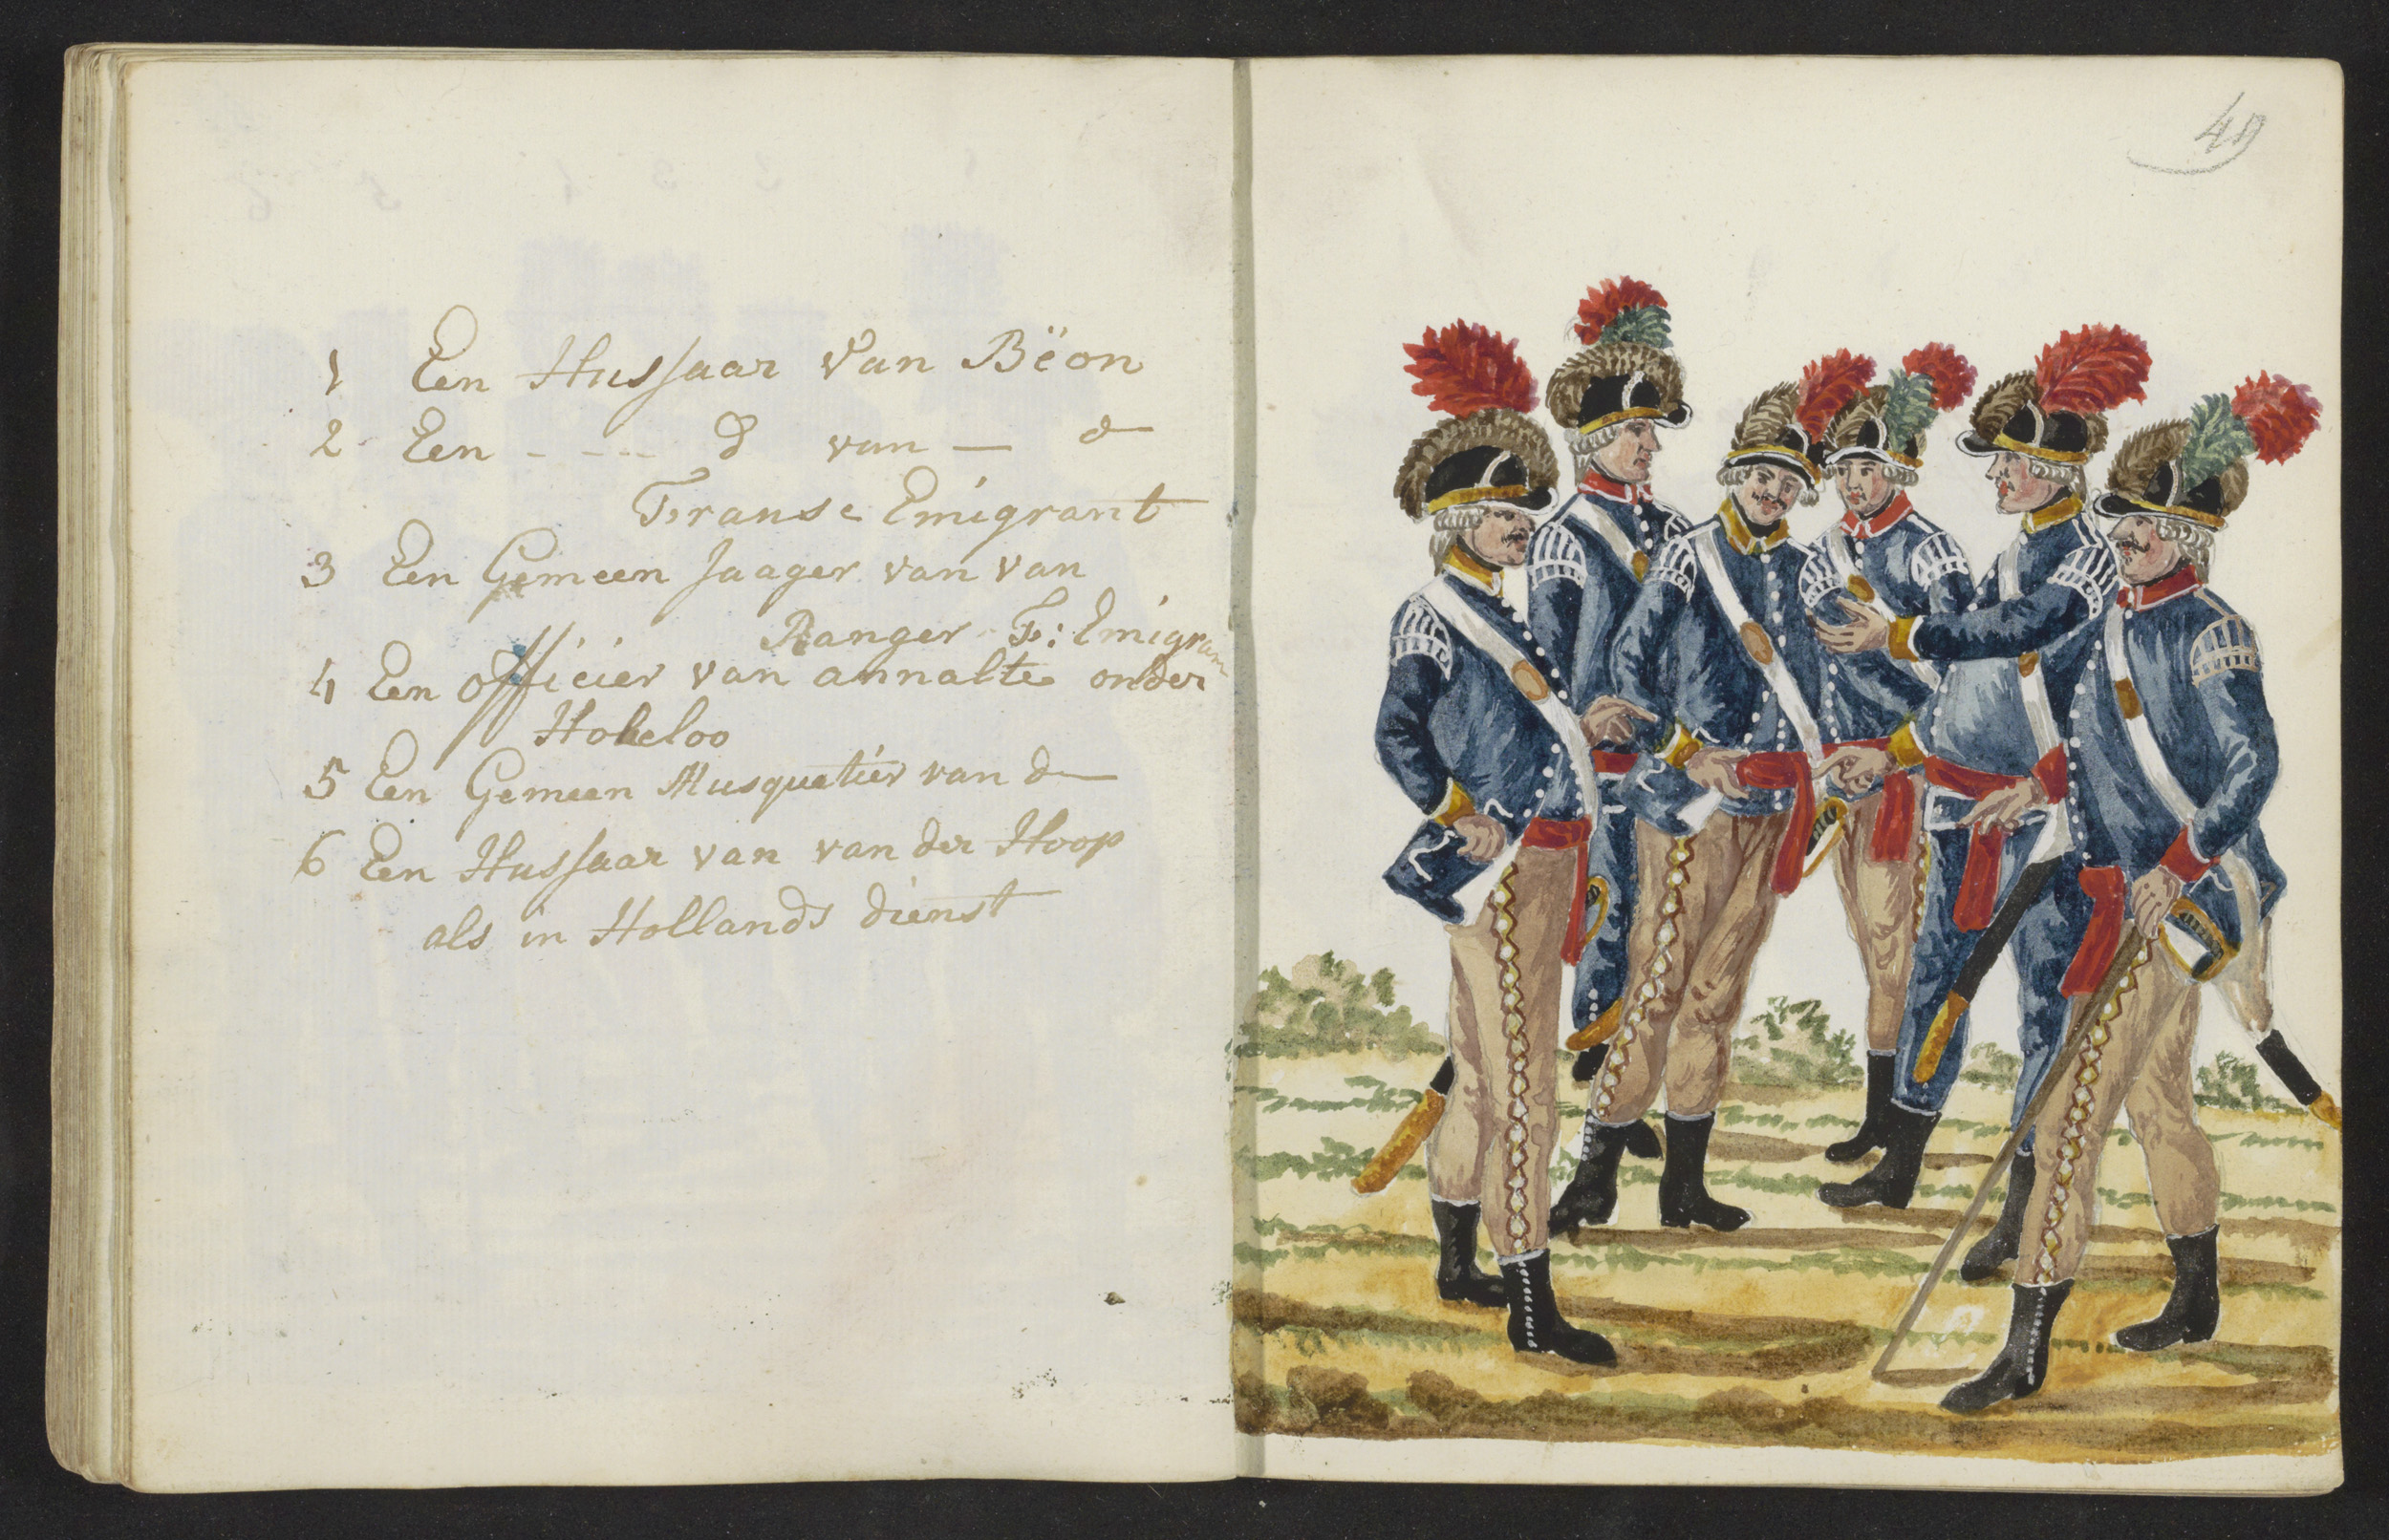 1 Een Hussaar Van Bëon
2 Een - - -- d° van — d°
Franse Emigrant
3 Een Gemeen Jaager van van
Ranger F: Emigran
4 Een officier van annalte onder
Hoheloo
5 Een Gemeen Musquetier van d°
6 Een Hussaar van van der Hoop
als in Hollands dienst